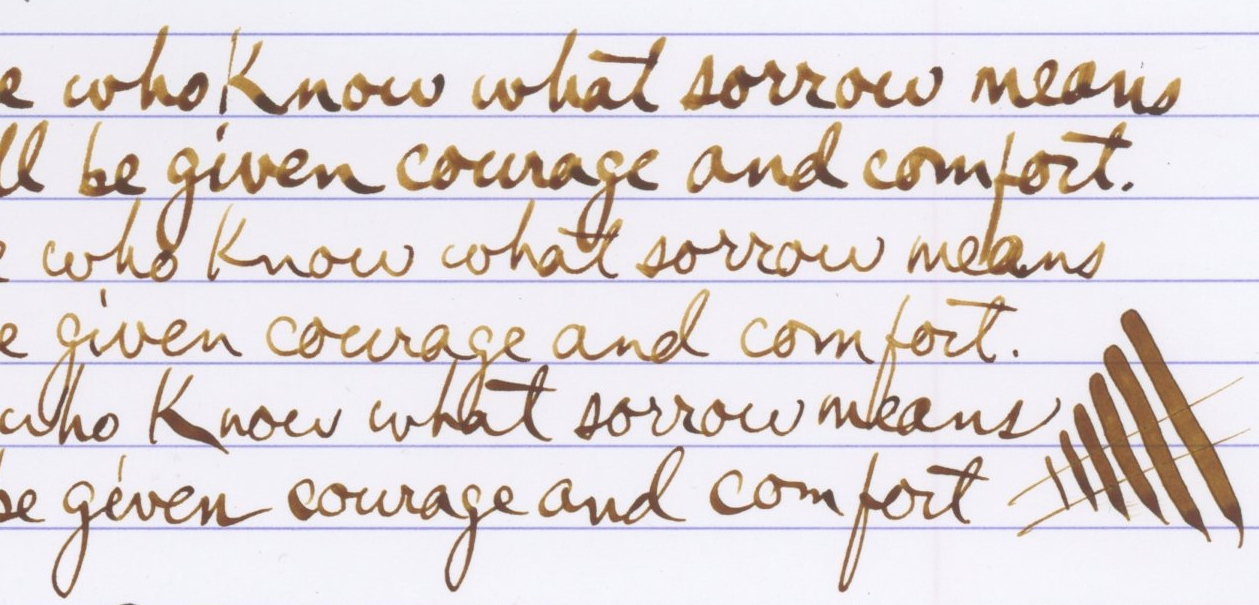 e who Know what sorrow means
ll be given courage and comfort.
e who Know what sorrow means
e given courage and comfort.
who Know what sorrow means
be given courage and comfort